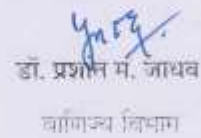 डॉ. प्रशांत म. जाधव
वाणिज्य विभाग